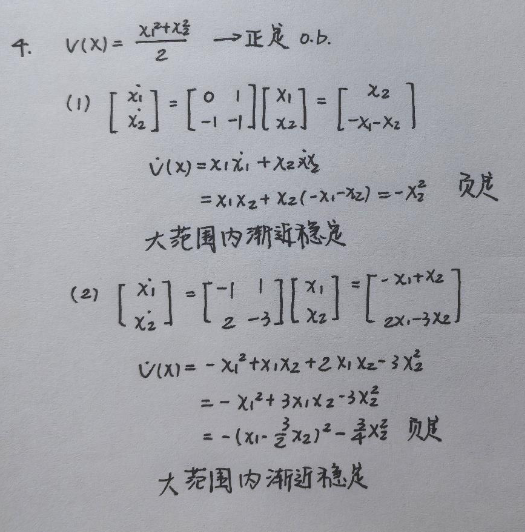 4. V(x) = (x₁²+x₂²)/2 → 正定 o.b.
(1) [ẋ₁; ẋ₂] = [0 1; -1 -1][x₁; x₂] = [x₂; -x₁-x₂]
V̇(x) = x₁ẋ₁ + x₂ẋ₂
= x₁x₂ + x₂(-x₁-x₂) = -x₂² 负定
大范围内渐近稳定
(2) [ẋ₁; ẋ₂] = [-1 1; 2 -3][x₁; x₂] = [-x₁+x₂; 2x₁-3x₂]
V̇(x) = -x₁²+x₁x₂+2x₁x₂-3x₂²
= -x₁²+3x₁x₂-3x₂²
= -(x₁-3/2x₂)²-3/4x₂² 负定
大范围内渐近稳定